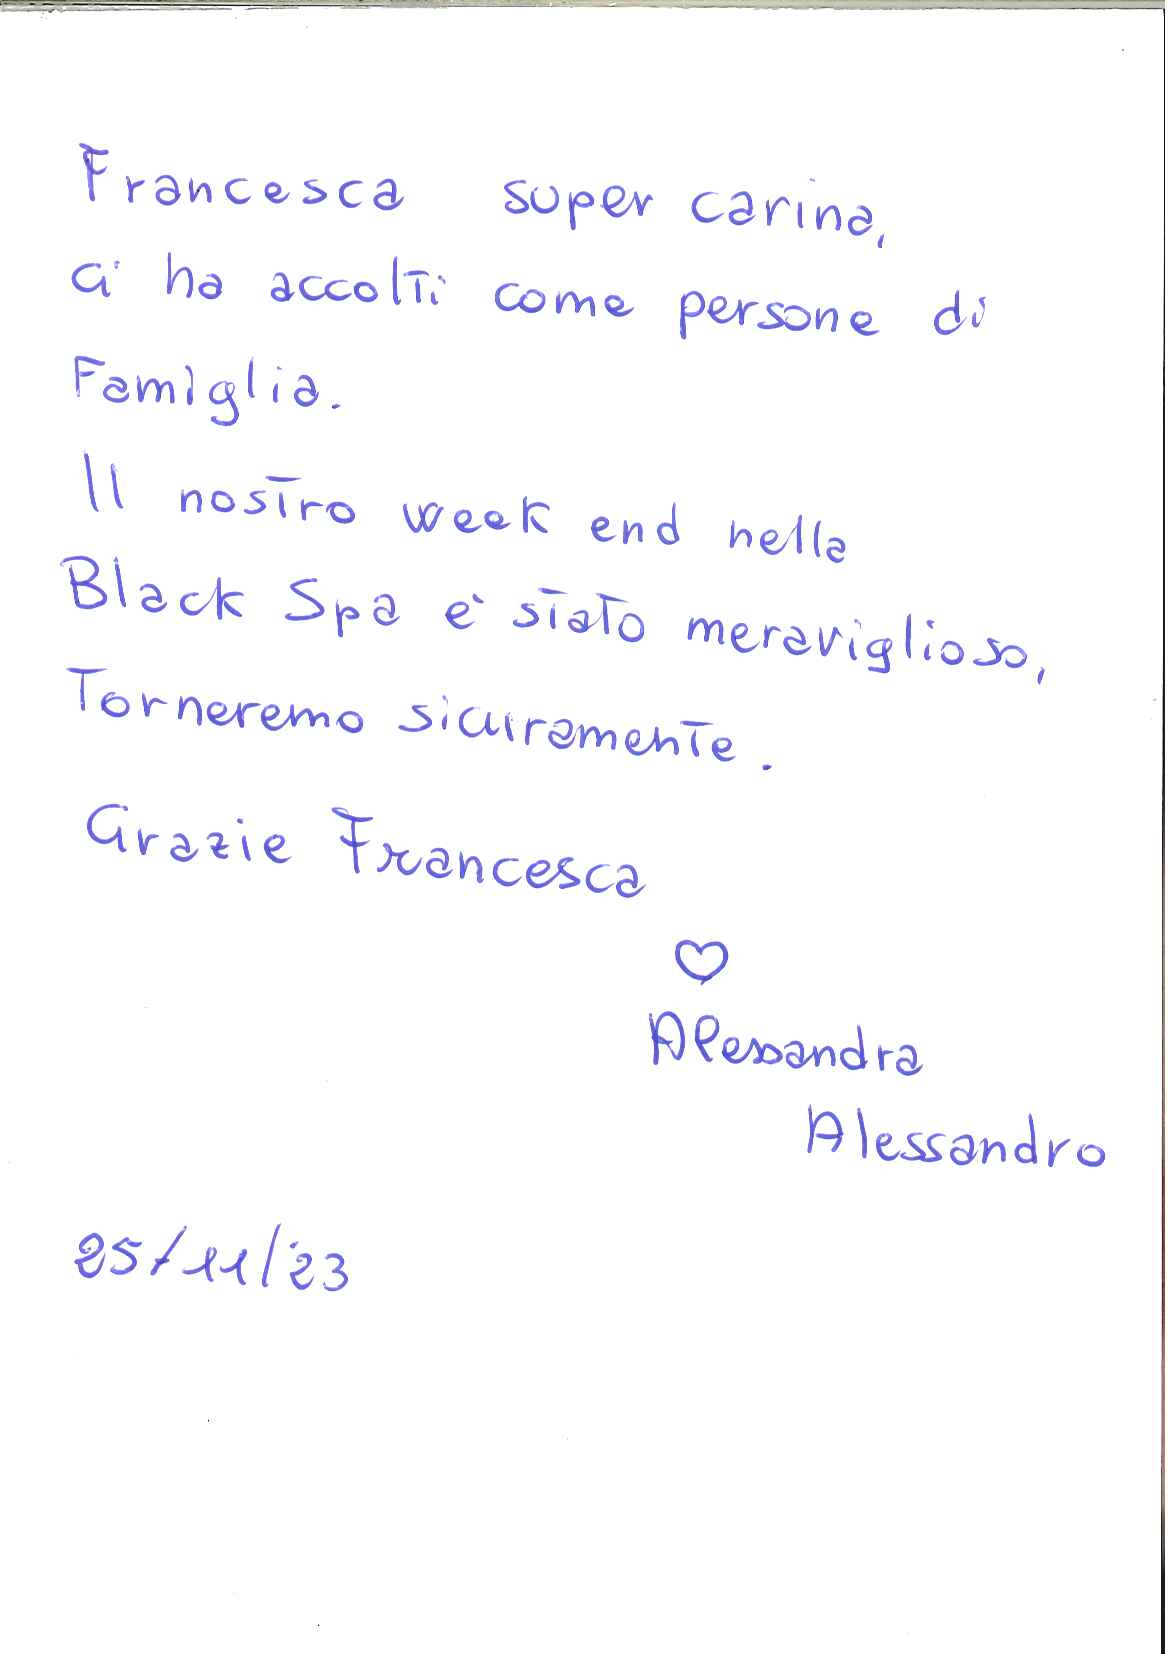 Francesca super carina,
ci ha accolti come persone di
Famiglia.
Il nostro week end nella
Black Spa è stato meraviglioso,
Torneremo sicuramente.
Grazie Francesca
♡
Alessandra
Alessandro
25/11/23